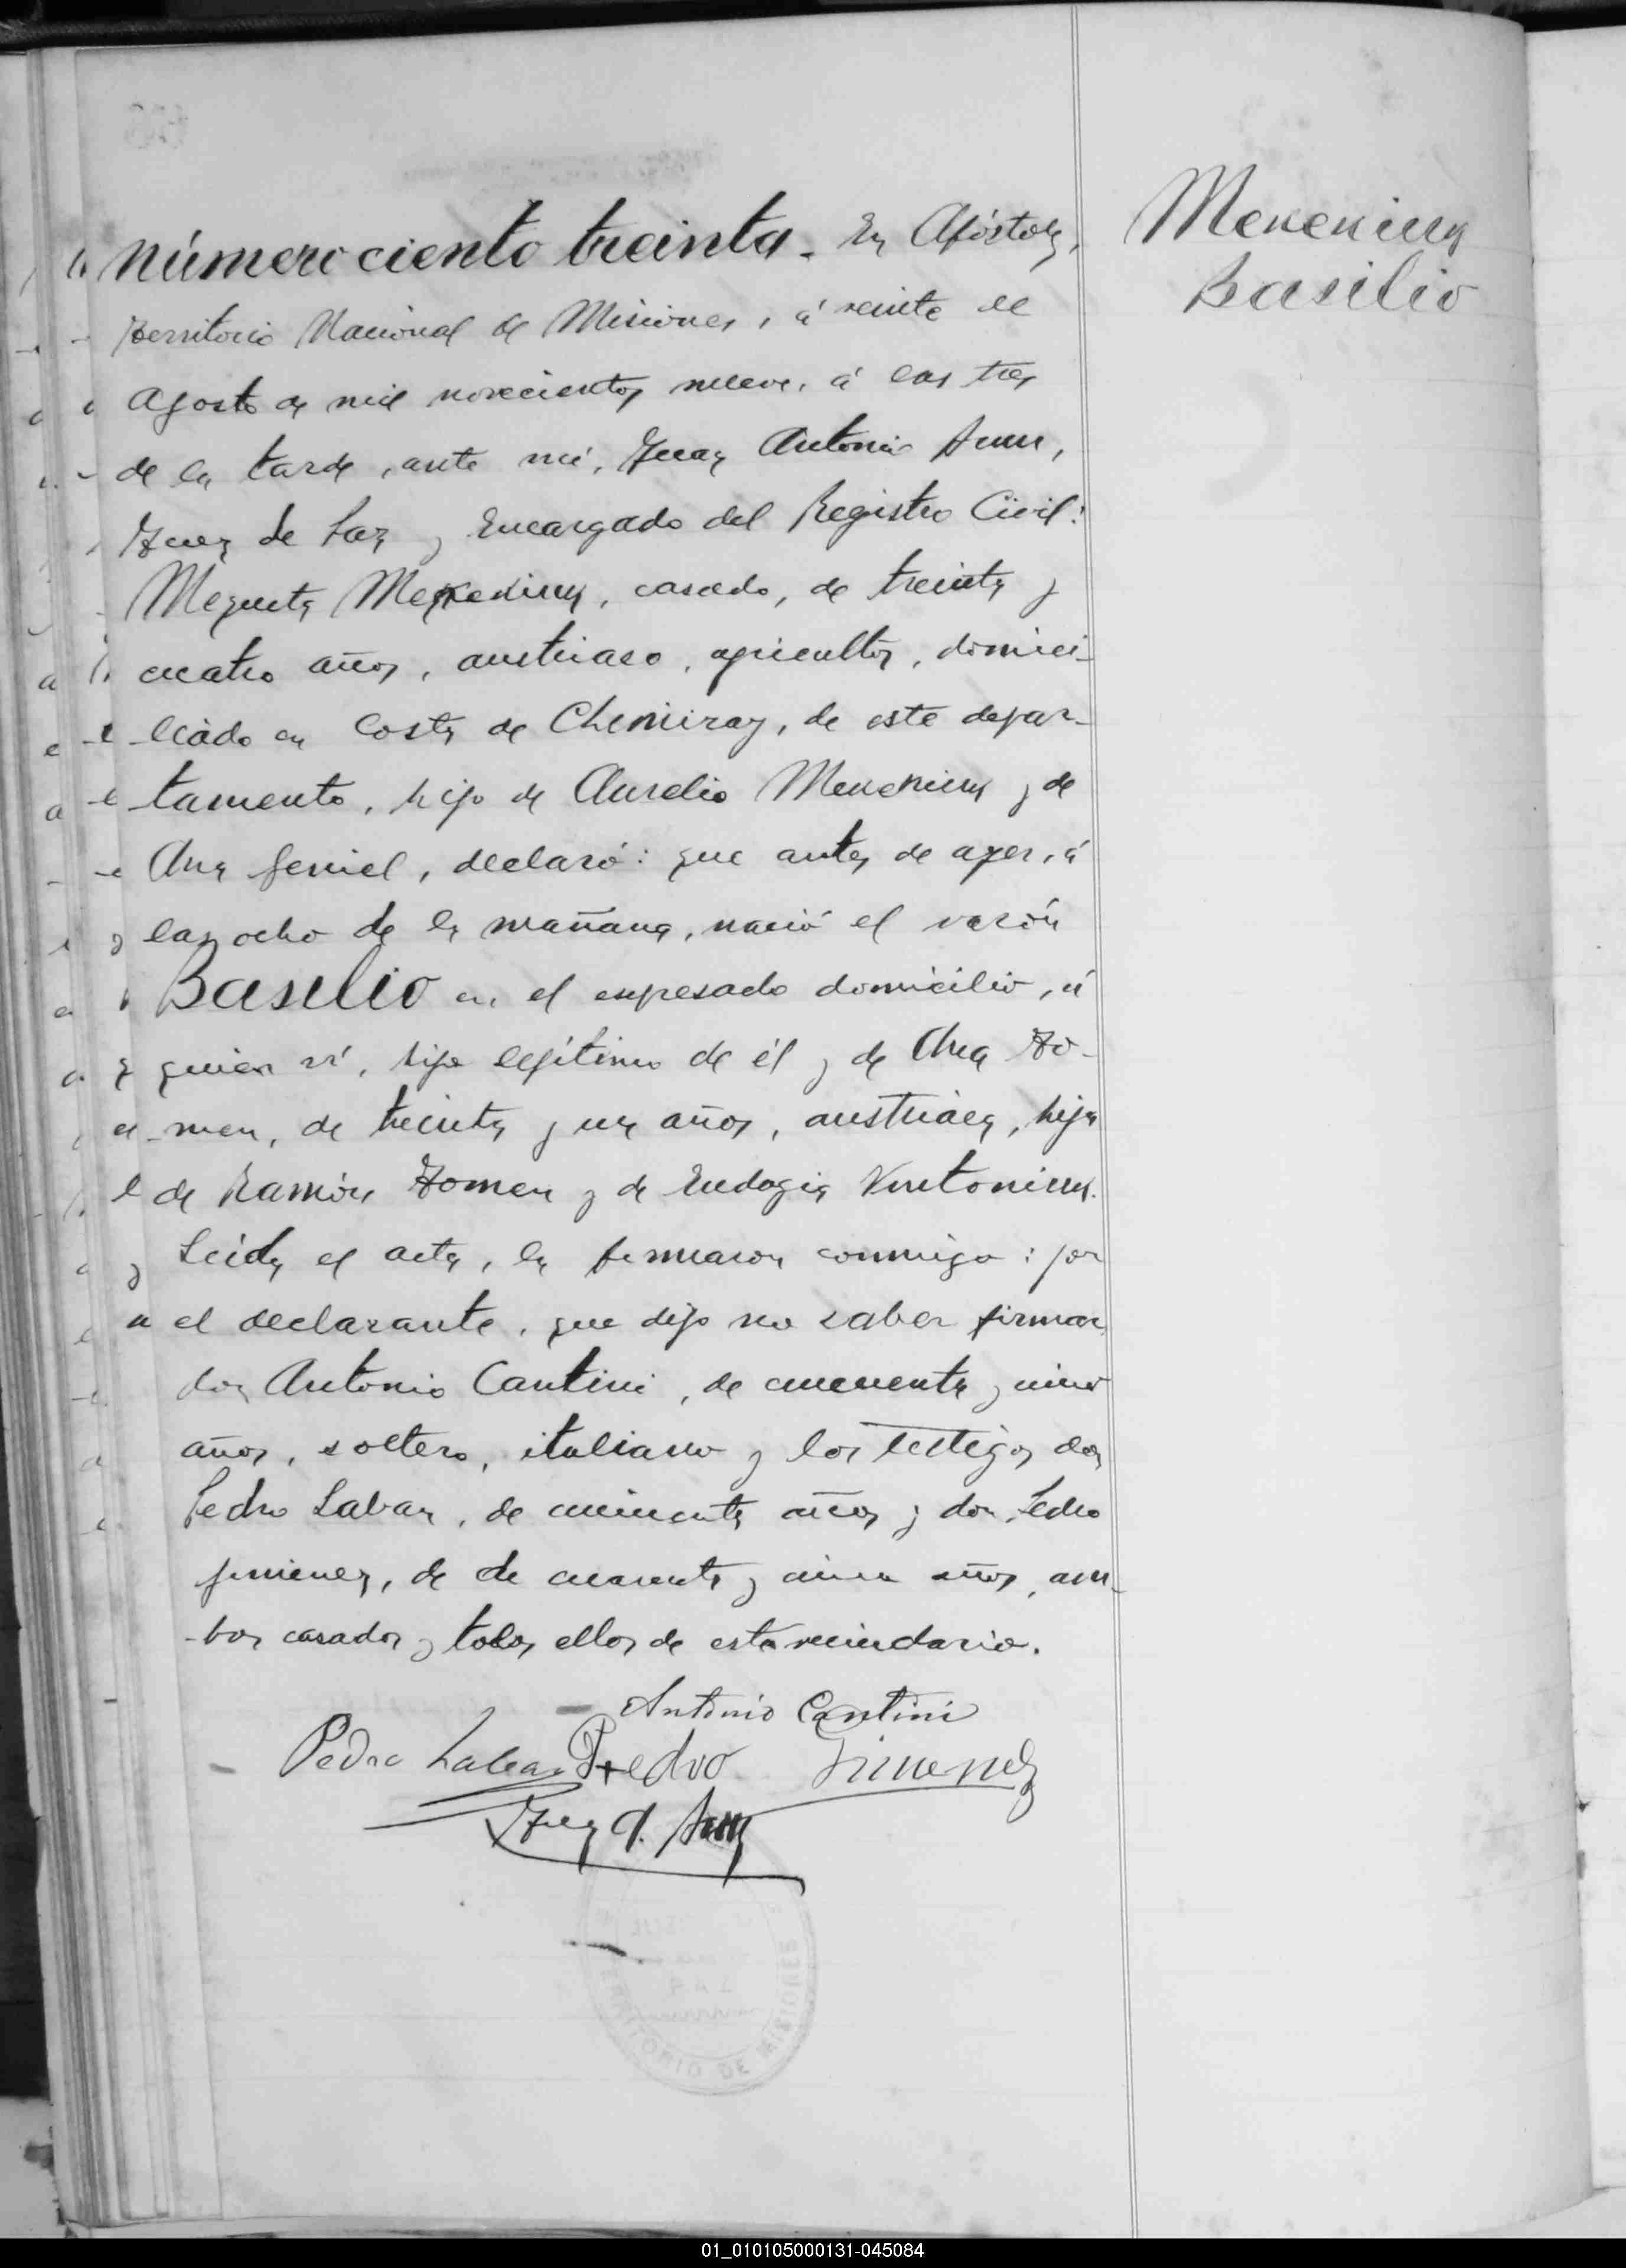 Número ciento treinta. En Apóstoles,
Territorio Nacional de Misiones, á veinte de
Agosto de mil novecientos nueve, á las tres
de la tarde, ante mí, Juan Antonio
Juez de Paz y Encargado del Registro Civil:
casado, de treinta y
cuatro años, austriaco, agricultor, domici-
liado en Costa de Chimiray, de este depar-
tamento, hijo de Aurelio y de
Ana declaró: que antes de ayer, á
las ocho de la mañana, nació el varón
Basilio en el expresado domicilio, á
quien ví, hijo legítimo de él y de Ana Ho-
men, de treinta y un años, austriaca, hija
de Ramón Homen y de
Leida el acta, la firmaron conmigo: por
el declarante, que dijo no saber firmar
don Antonio Cantini, de cincuenta y cinco
años, soltero, italiano y los testigos don
Pedro Labar, de cincuenta años y don Pedro
Jimenez, de de cuarenta y cinco años, am-
bos casados y todos ellos de este vecindario.
Antonio Cantini
Pedro Labar Pedro Jimenez
Juan A.
Basilio
TERRITORIO DE MISIONES
01_010105000131-045084